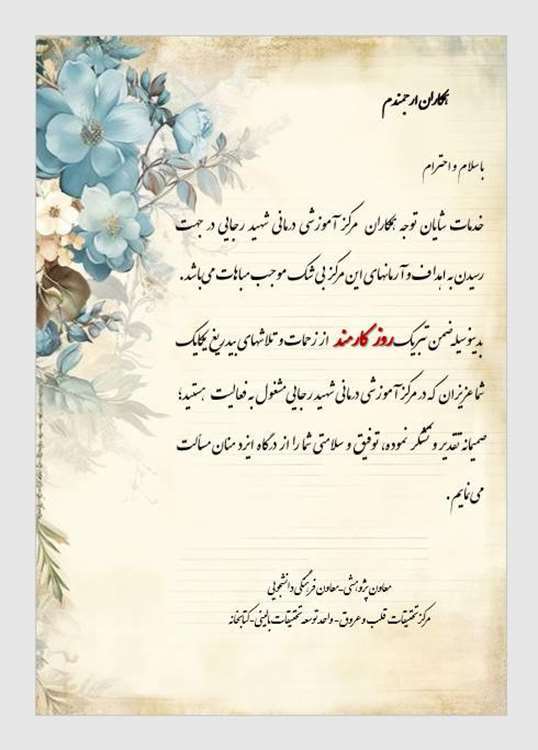 همکاران ارجمندم
باسلام و احترام
خدمات شایان توجه همکاران مرکز آموزشی درمانی شهید رجایی در جهت
رسیدن به اهداف و آرمانهای این مرکز بی شک موجب مباهات می باشد.
بدینوسیله ضمن تبریک روز کارمند از زحمات و تلاشهای بیدریغ یکایک
شما عزیزان که در مرکز آموزشی درمانی شهید رجایی مشغول به فعالیت هستید؛
صمیمانه تقدیر و تشکر نموده، توفیق و سلامتی شما را از درگاه ایزد منان مسالت
می نمایم.
معاون پژوهشی-معاون فرهنگی دانشجویی
مرکز تحقیقات قلب و عروق- واحد توسعه تحقیقات بالینی-کتابخانه